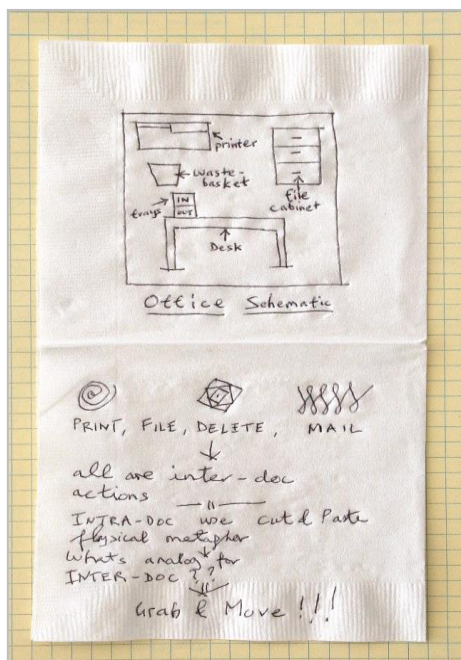 printer
waste-
basket
file
cabinet
trays
IN
OUT
Desk
Office Schematic
@
PRINT, FILE, DELETE, MAIL
all are inter-doc
actions
INTRA-DOC we cut & Paste
physical metapher
Whats analog for
INTER-DOC ?
Grab & Move !!!